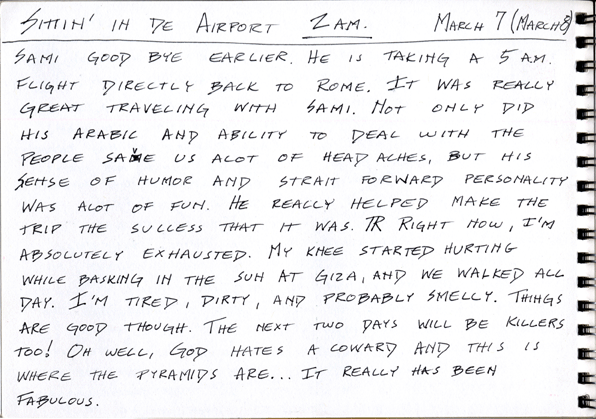 SITTIN' IN DE AIRPORT 2 AM. MARCH 7 (MARCH 8)
SAMI GOOD BYE EARLIER. HE IS TAKING A 5 AM.
FLIGHT DIRECTLY BACK TO ROME. IT WAS REALLY
GREAT TRAVELING WITH SAMI. NOT ONLY DID
HIS ARABIC AND ABILITY TO DEAL WITH THE
PEOPLE SAVE US ALOT OF HEAD ACHES, BUT HIS
SENSE OF HUMOR AND STRAIT FORWARD PERSONALITY
WAS ALOT OF FUN. HE REALLY HELPED MAKE THE
TRIP THE SUCCESS THAT IT WAS. RIGHT NOW, I'M
ABSOLUTELY EXHAUSTED. MY KNEE STARTED HURTING
WHILE BASKING IN THE SUN AT GIZA, AND WE WALKED ALL
DAY. I'M TIRED, DIRTY, AND PROBABLY SMELLY. THINGS
ARE GOOD THOUGH. THE NEXT TWO DAYS WILL BE KILLERS
TOO! OH WELL, GOD HATES A COWARD AND THIS IS
WHERE THE PYRAMIDS ARE... IT REALLY HAS BEEN
FABULOUS.